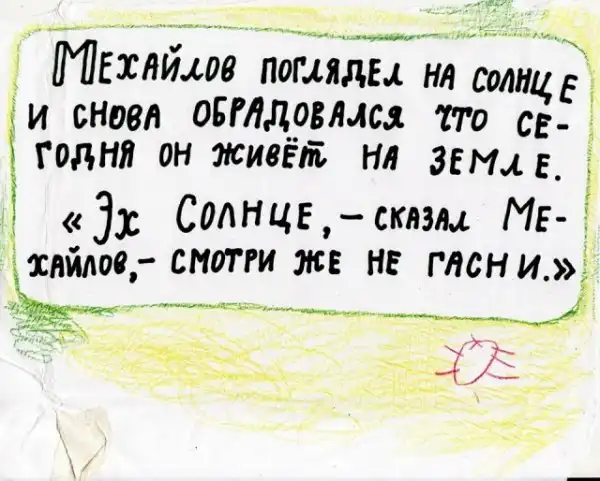 Мехайлов поглядел на солнце
и снова обрадовался что се-
годня он живёт на земле.
«Эх Солнце, – сказал Ме-
хайлов,– смотри же не гасни.»